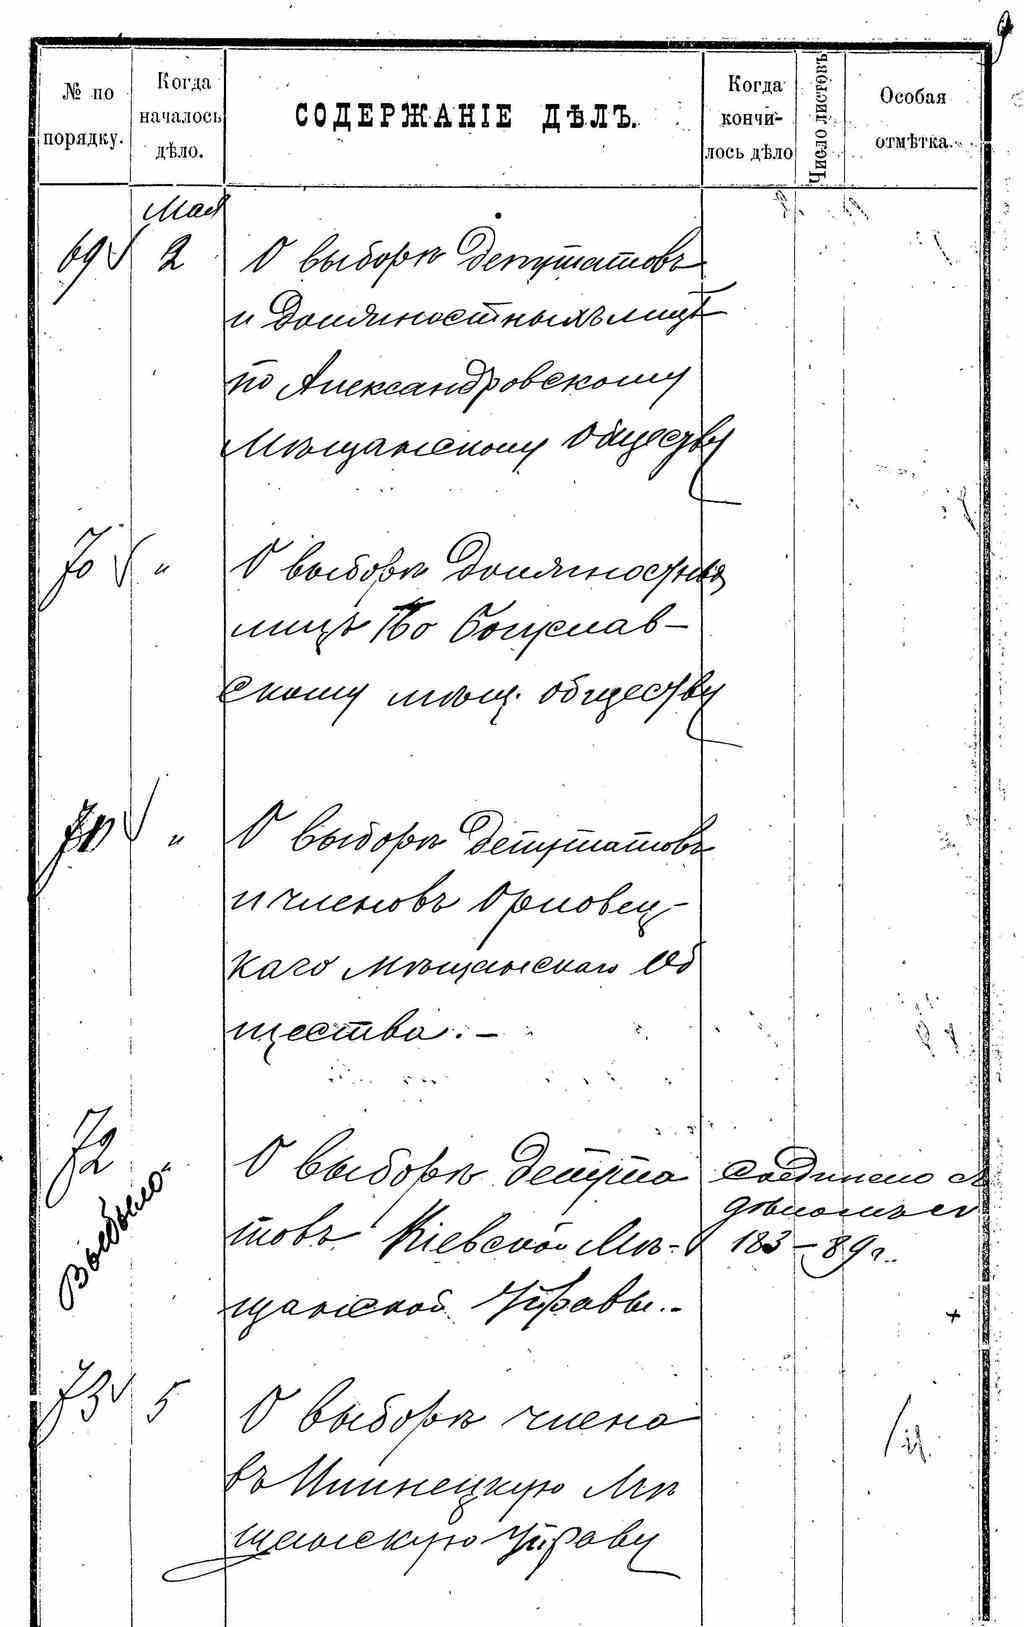 № по порядку.
Когда началось дѣло.
СОДЕРЖАНІЕ ДѢЛЪ.
Когда кончилось дѣло
Число листовъ
Особая отмѣтка.
Мая
69 2 О выборѣ депутатовъ
и должностныхъ лицъ
по Александровскому
Мѣщанскому Обществу
70 " О выборѣ должностныхъ
лицъ По Богуслав-
скому мѣщ. обществу
71 " О выборѣ депутатовъ
и членовъ Орловец-
каго Мѣщанскаго Об
щества. -
72 " О выборѣ депута
Выбыло
товъ Кіевской Мѣ-
щанской Управы. -
Соединено съ
дѣломъ №
183 - 89 г.
73 5 О выборѣ члена
въ Мѣ
щанскую Управу